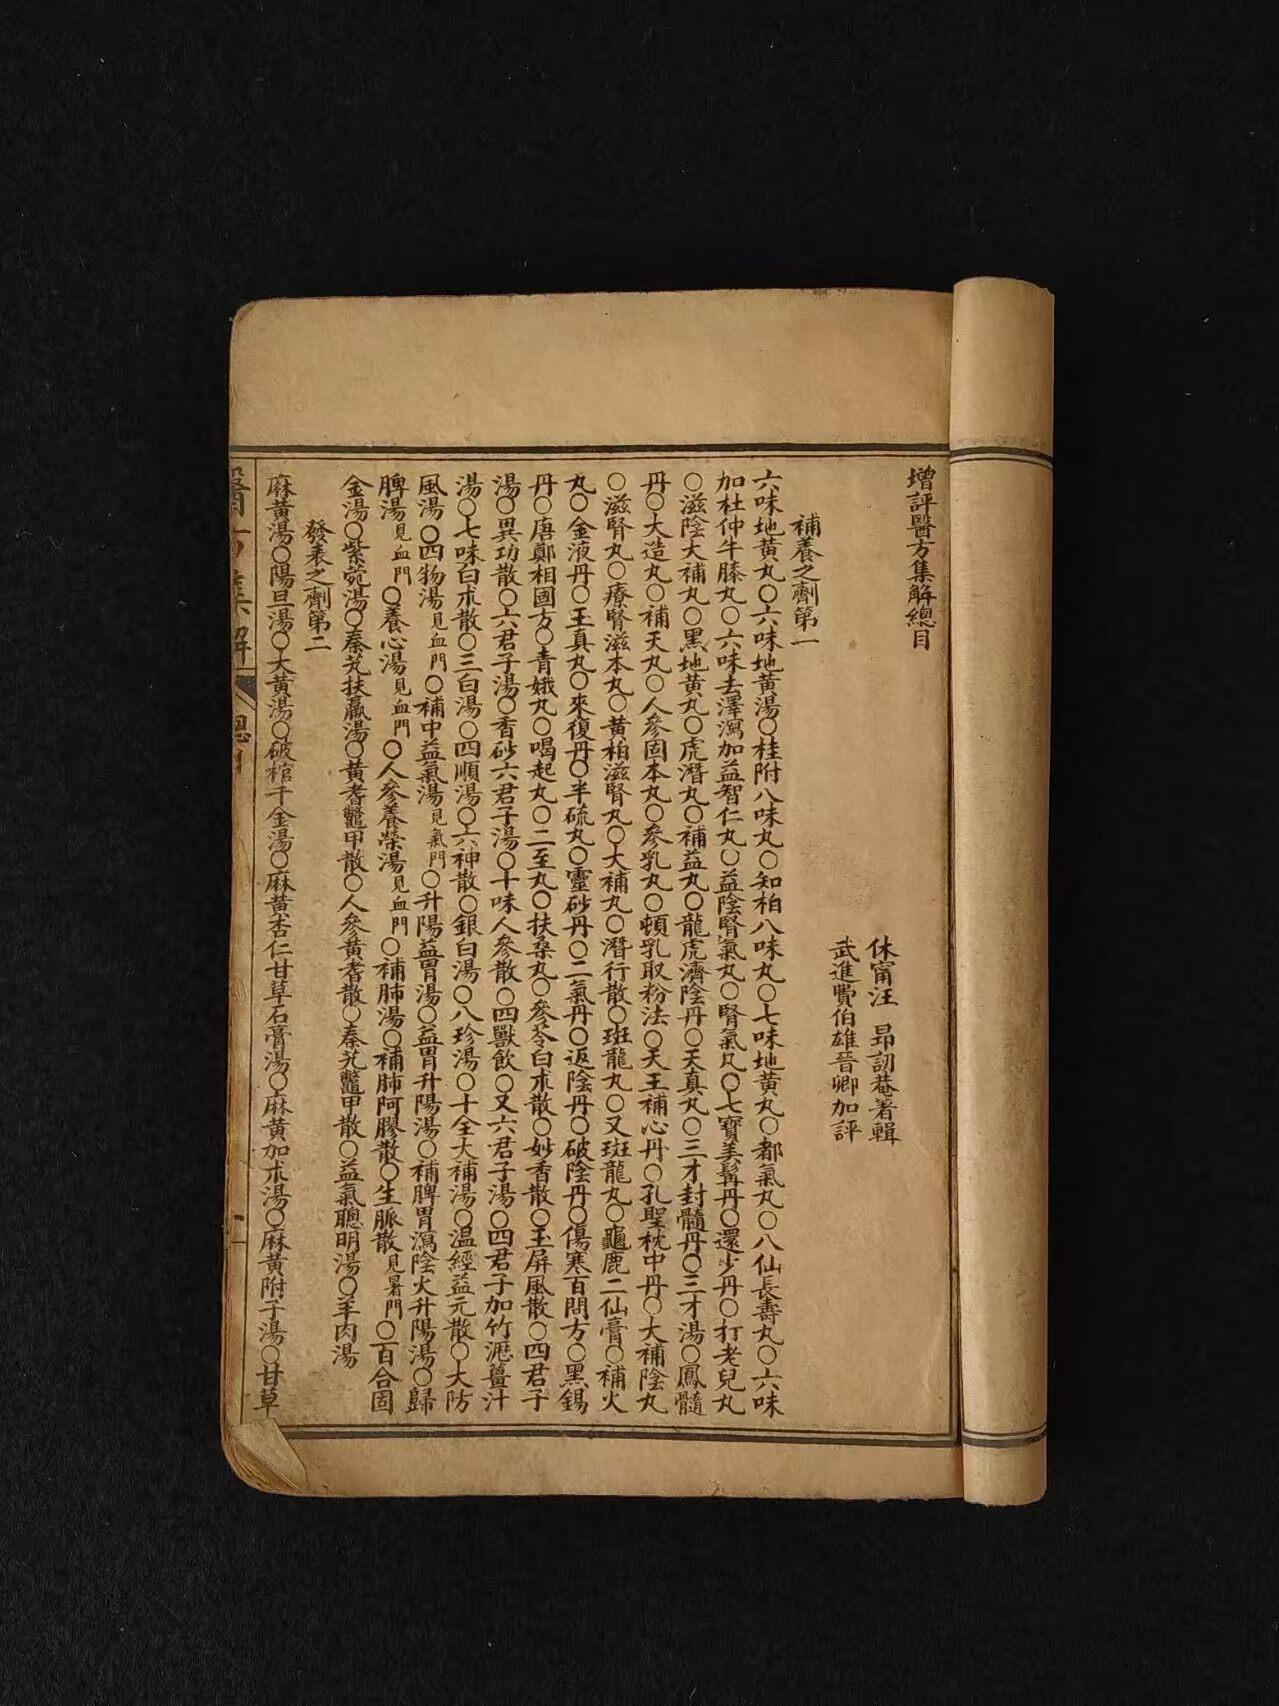 增評醫方集解總目
休甯汪昂訒菴著輯
武進費伯雄晉卿加評
補養之劑第一
六味地黃丸○六味地黃湯○桂附八味丸○知柏八味丸○七味地黃丸○都氣丸○八仙長壽丸○六味
加杜仲牛膝丸○六味去澤瀉加益智仁丸○益陰腎氣丸○腎氣丸○七寶美髯丹○還少丹○打老兒丸
○滋陰大補丸○黑地黃丸○虎潛丸○補益丸○龍虎濟陰丹○天真丸○三才封髓丹○三才湯○鳳髓
丹○大造丸○補天丸○人參固本丸○參乳丸○頓乳取粉法○天王補心丹○孔聖枕中丹○大補陰丸
○滋腎丸○療腎滋本丸○黃柏滋腎丸○大補丸○潛行散○斑龍丸○又斑龍丸○龜鹿二仙膏○補火
丸○金液丹○玉真丸○來復丹○半硫丸○靈砂丹○二氣丹○返陰丹○破陰丹○傷寒百問方○黑錫
丹○唐鄭相國方○青娥丸○喝起丸○二至丸○扶桑丸○參苓白朮散○妙香散○玉屏風散○四君子
湯○異功散○六君子湯○香砂六君子湯○十味人參散○四獸飲○又六君子湯○四君子加竹瀝薑汁
湯○七味白朮散○三白湯○四順湯○六神散○銀白湯○八珍湯○十全大補湯○溫經益元散○大防
風湯○四物湯見血門○補中益氣湯見氣門○升陽益胃湯○益胃升陽湯○補脾胃瀉陰火升陽湯○歸
脾湯見血門○養心湯見血門○人參養榮湯見血門○補肺湯○補肺阿膠散○生脈散見暑門○百合固
金湯○紫菀湯○秦艽扶羸湯○黃耆鱉甲散○人參黃耆散○秦艽鱉甲散○益氣聰明湯○羊肉湯
發表之劑第二
麻黃湯○陽旦湯○大黃湯○破棺千金湯○麻黃杏仁甘草石膏湯○麻黃加朮湯○麻黃附子湯○甘草
醫方集解 總目 一